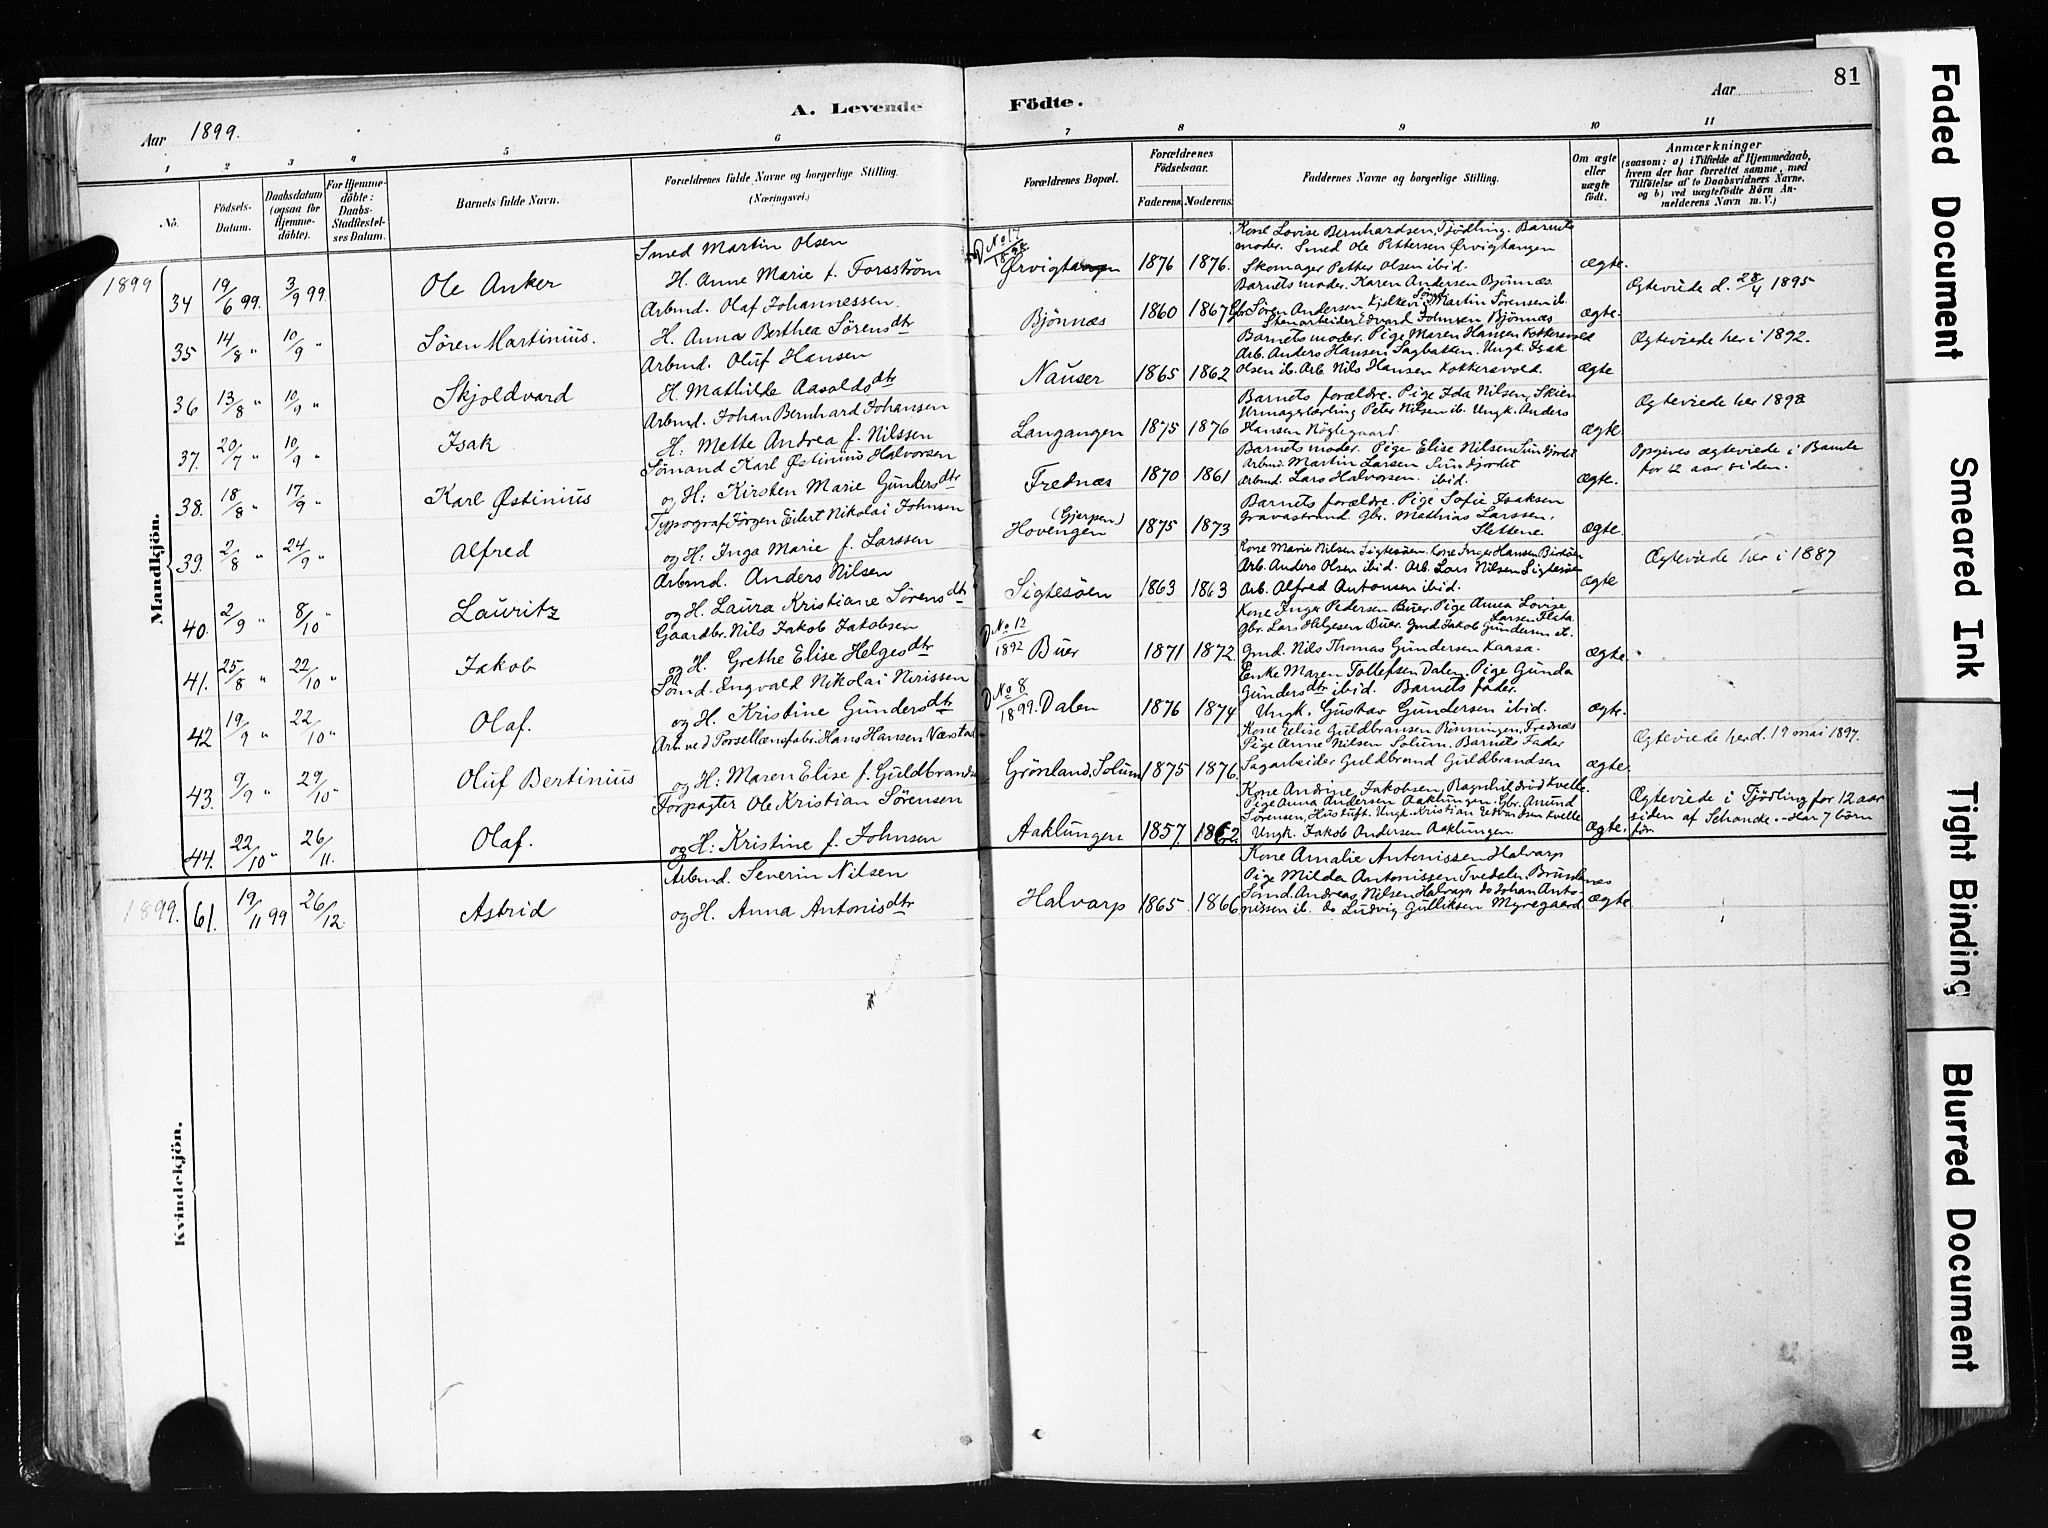 81
A. Levende Födte.
Aar 1899.
Aar
1 2 3 4 5 6 7 8 9 10 11
No.
Födsels-Datum.
Daabsdatum (ogsaa for Hjemme-döbte).
For Hjemme-döbte: Daabs-Stadfæstel-ses Datum.
Barnets fulde Navn.
Forældrenes fulde Navne og borgerlige Stilling.
(Næringsvei.)
Forældrenes Bopæl.
Forældrenes Födselsaar.
Faderens. Moderens.
Faddernes Navne og borgerlige Stilling.
Om ægte eller uægte födt.
Anmærkninger
(saasom: a) i Tilfælde af Hjemmedaab, hvem der har forrettet samme, med Tilföielse af to Daabsvidners Navne, og b) ved uægtefödte Börn An-melderens Navn m. V.)
Mandkjön.
1899
34 19/6 99. 3/9 99 Ole Anker
Smed Martin Olsen
H. Anne Marie f. Forsström
D No 17
Ørvigtangen 1876 1876.
Kone Lovise Bernhardsen, Tjödling. Barnets
moder. Smed Ole Pettersen Ørvigtangen
Skomager Petter Olsen ibid.
ægte.
35 14/8 " 10/9 " Sören Martinius.
Arbmd. Olaf Johannessen.
H. Anna Berthea Sörensdtr
Bjönnæs 1860 1867
Barnets moder. Karen Andersen Bjönnæs.
Gbr. Sören Andersen Martin Sörensen ib.
Stenarbeider Edvard Johnsen Bjönnæs
ægte.
Ægteviede d. 28/4 1895
36 13/8 " 10/9 " Skjoldvard
Arbmd. Oluf Hansen
H. Mathilde Aasoldsdtr
Nauser 1865 1862
Barnets moder. Pige Maren Hansen Kokkersvold
Arb. Anders Hansen Sagbakken. Ungk. Isak
Olsen ib. Arb. Nils Hansen Kokkersvold.
ægte
Ægteviede her i 1892.
37. 20/7 " 10/9 " Isak
Arbmd. Johan Bernhard Johansen
H: Mette Andrea f. Nilssen
Langangen 1875 1876
Barnets forældre. Pige Ida Nilsen, Skien
Urmagerlærling Peter Nilsen ib. Ungk. Anders
Hansen Nöglegaard.
ægte
Ægteviede her 1898
38. 18/8 " 17/9 " Karl Østinius
Sömand Karl Østinius Halvorsen
og H: Kirsten Marie Gundersdtr
Frednæs 1870 1861
Barnets moder. Pige Elise Nilsen Sundjordet
Arbmd. Martin Larsen Sundjordet
Arbmd. Lars Halvorsen. ibid.
ægte.
Opgives ægteviede i Bamle
for 12 aar siden.
39. 2/8 " 24/9 " Alfred
Typograf Jörgen Eilert Nikolai Johnsen
og H: Inga Marie f. Larssen
(Gjerpen)
Hovengen 1875 1873
Barnets forældre. Pige Sofie Isaksen
Gravastrand. Gbr. Mathias Larssen,
Slettene.
ægte.
40. 2/9 " 8/10 " Lauritz
Arbmd. Anders Nilsen
og H. Laura Kristiane Sörensdtr
Sigtesöen 1863 1863
Kone Marie Nilsen Sigtesöen. Kone Inger Hansen
Arb. Anders Olsen ibid. Arb. Lars Nilsen Sigtesöen
Arb. Alfred Antonsen ibid.
ægte
Ægteviede her i 1887
41. 25/8 " 22/10 " Jakob
Gaardbr. Nils Jakob Jakobsen
og H. Grethe Elise Helgesdtr
D No 12
1892 Buer 1871 1872.
Kone Inger Pedersen Buer. Pige Anna Lovise
Larsen
Gbr. Lars Helgesen Buer. Gmd. Jakob Gundersen ib.
Gmd. Nils Thomas Gundersen Kaasa.
ægte.
42 19/9 " 22/10 " Olaf.
Sömd. Ingvald Nikolai Nirissen
og H. Kristine Gundersdtr
D No 8
1899. Dalen 1876 1874
Enke Maren Tollefsen Dalen. Pige Gunda
Gundersdtr ibid. Barnets fader.
Ungk. Gustav Gundersen ibid.
ægte.
43. 9/9 " 29/10 Oluf Bertinius
Arb. ved Porsellænsfabr. Hans Hansen
og H: Maren Elise f. Guldbrands
Grönland, Solum 1875 1876.
Kone Elise Guldbransen Rönningen, Frednæs
Pige Anne Nilsen Solum. Barnets Fader
Sagarbeider Guldbrand Guldbrandsen
ægte.
Ægteviede her d. 19 mai 1897.
44. 22/10 " 26/11. Olaf.
Forpagter Ole Kristian Sörensen
og H: Kristine f. Johnsen
Aaklungen 1857. 1862
Kone Andrine Jakobsen, Kvelle.
Pige Anna Andersen Aaklungen. Gbr. Amund
Sörensen, Ungk. Kristian Edvardsen Kvelle
Ungk. Jakob Andersen Aaklungen
ægte.
Ægteviede i Tjödling for 12 aar
siden af Schande. Har 7 börn
för.
Kvindekjön.
1899. 61. 19/11 99 26/12. Astrid
Arbmd. Severin Nilsen
og H. Anna Antonisdtr
Halvarp 1865. 1866
Kone Amalie Antonissen Halvarp
Pige Milda Antonissen Tvedalen, Brunlanes
Sömd. Andreas Nilsen Halvarp do Johan Anto-
nissen ib. do Ludvig Gulliksen Myregaard
ægte
Faded Document
Smeared Ink
Tight Binding
Blurred Document